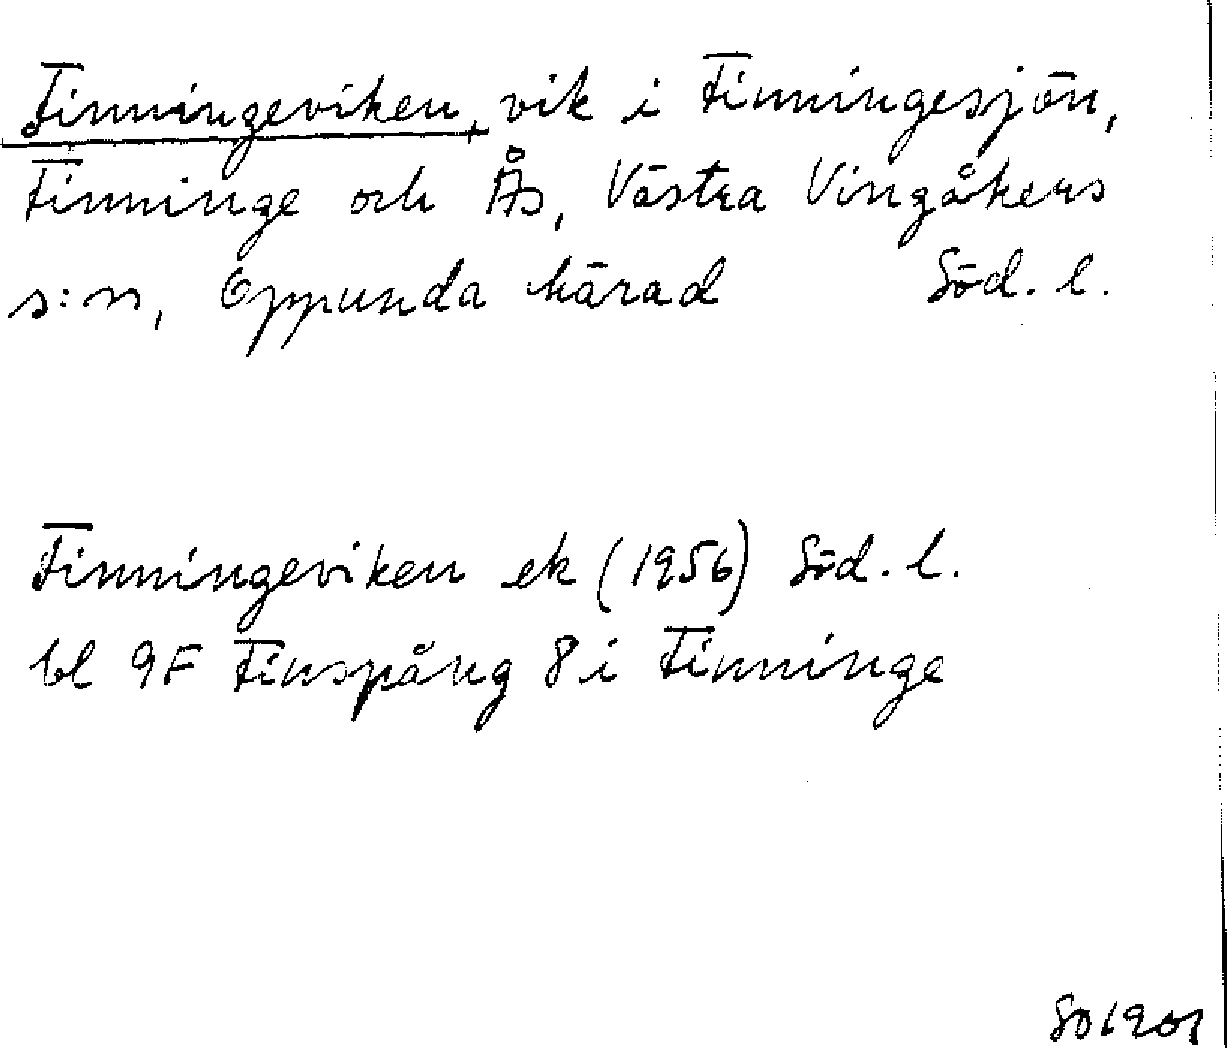 Finningeviken, vik i Finningesjön,
Finninge och Ås, Västra Vingåkers
s:n, Oppunda härad Söd. l.
Finningeviken ek (1956) Söd. l.
bl 9F Finspång 8 i Finninge